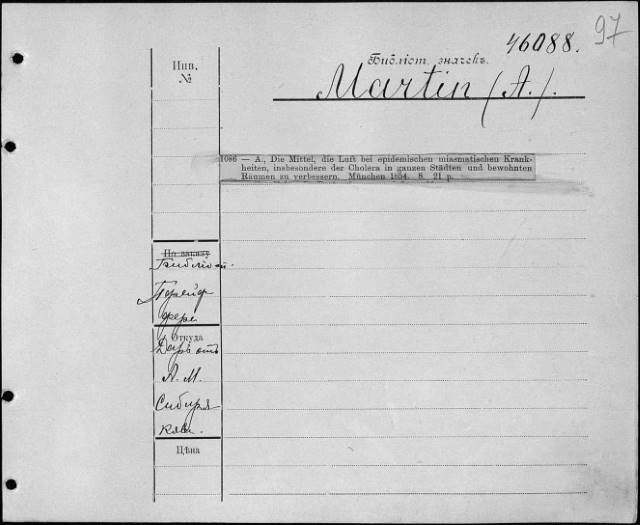 97
46088.
Инв.
№
Библіот. значекъ.
Martin (A.).
1086 — A., Die Mittel, die Luft bei epidemischen miasmatischen Krank-
heiten, insbesondere der Cholera in ganzen Städten und bewohnten
Räumen zu verbessern. München 1854. 8. 21 p.
По заказу
Библіот.
Откуда
Даръ отъ
А. М.
Сибиря
кова.
Цѣна